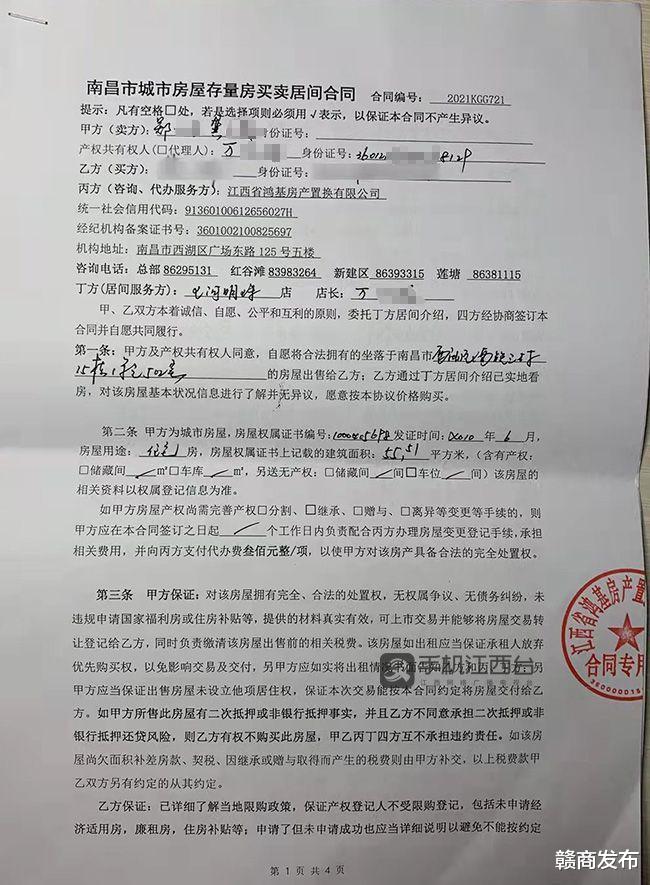 南昌市城市房屋存量房买卖居间合同 合同编号： 2021KGG721
提示：凡有空格□处，若是选择项则必须用√表示，以保证本合同不产生异议。
甲方（卖方）： 身份证号：
产权共有权人（□代理人）：万 身份证号：36012 8129
乙方（买方）： 身份证号：
丙方（咨询、代办服务方）：江西省鸿基房产置换有限公司
统一社会信用代码：91360100612656027H
经纪机构备案证书号：3601002100825697
机构地址：南昌市西湖区广场东路125号五楼
咨询电话：总部 86295131 红谷滩 83983264 新建区 86393315 莲塘 86381115
丁方（居间服务方）： 明珠 店 店长：万
甲、乙双方本着诚信、自愿、公平和互利的原则，委托丁方居间介绍，四方经协商签订本
合同并自愿共同履行。
第一条：甲方及产权共有权人同意，自愿将合法拥有的坐落于南昌市
15栋1单元502室 的房屋出售给乙方；乙方通过丁方居间介绍已实地看
房，对该房屋基本状况信息进行了解并无异议，愿意按本协议价格购买。
第二条 甲方为城市房屋，房屋权属证书编号： 发证时间：2010 年 6 月，
房屋用途：住宅 房，房屋权属证书上记载的建筑面积：55.51 平方米，（含有产权：
□储藏间 ／ ㎡□车库 ／ ㎡，另送无产权：□储藏间 ／ 间□车位 ／ 间）该房屋的
相关资料以权属登记信息为准。
如甲方房屋产权尚需完善产权□分割、□继承、□赠与、□离异等变更等手续的，则
甲方应在本合同签订之日起 ／ 个工作日内负责配合丙方办理房屋变更登记手续，承担
相关费用，并向丙方支付代办费叁佰元整/项，以使甲方对该房产具备合法的完全处置权。
第三条 甲方保证：对该房屋拥有完全、合法的处置权，无权属争议、无债务纠纷，未
违规申请国家福利房或住房补贴等，提供的材料真实有效，可上市交易并能够将房屋交易转
让登记给乙方，同时负责缴清该房屋出售前的相关税费。该房屋如出租应当保证承租人放弃
优先购买权，以免影响交易及交付，另甲方应如实将出租情况书面告知 另
甲方应当保证出售房屋未设立他项居住权，保证本次交易能按本合同约定将房屋交付给乙
方。如甲方所售此房屋有二次抵押或非银行抵押事实，并且乙方不同意承担二次抵押或非
银行抵押还贷风险，则乙方有权不购买此房屋，甲乙丙丁四方互不承担违约责任。如该房
屋尚欠面积补差房款、契税、因继承或赠与取得而产生的税费则由甲方补交，以上税费款甲
乙双方另有约定的从其约定。
乙方保证：已详细了解当地限购政策，保证产权登记人不受限购登记，包括未申请经
济适用房，廉租房，住房补贴等；申请了但未申请成功也应当详细说明以避免不能按约定
第 1 页 共 4 页
江西省鸿基房产置
合同专用
手机江西台
江西网络广播电视台
赣商发布